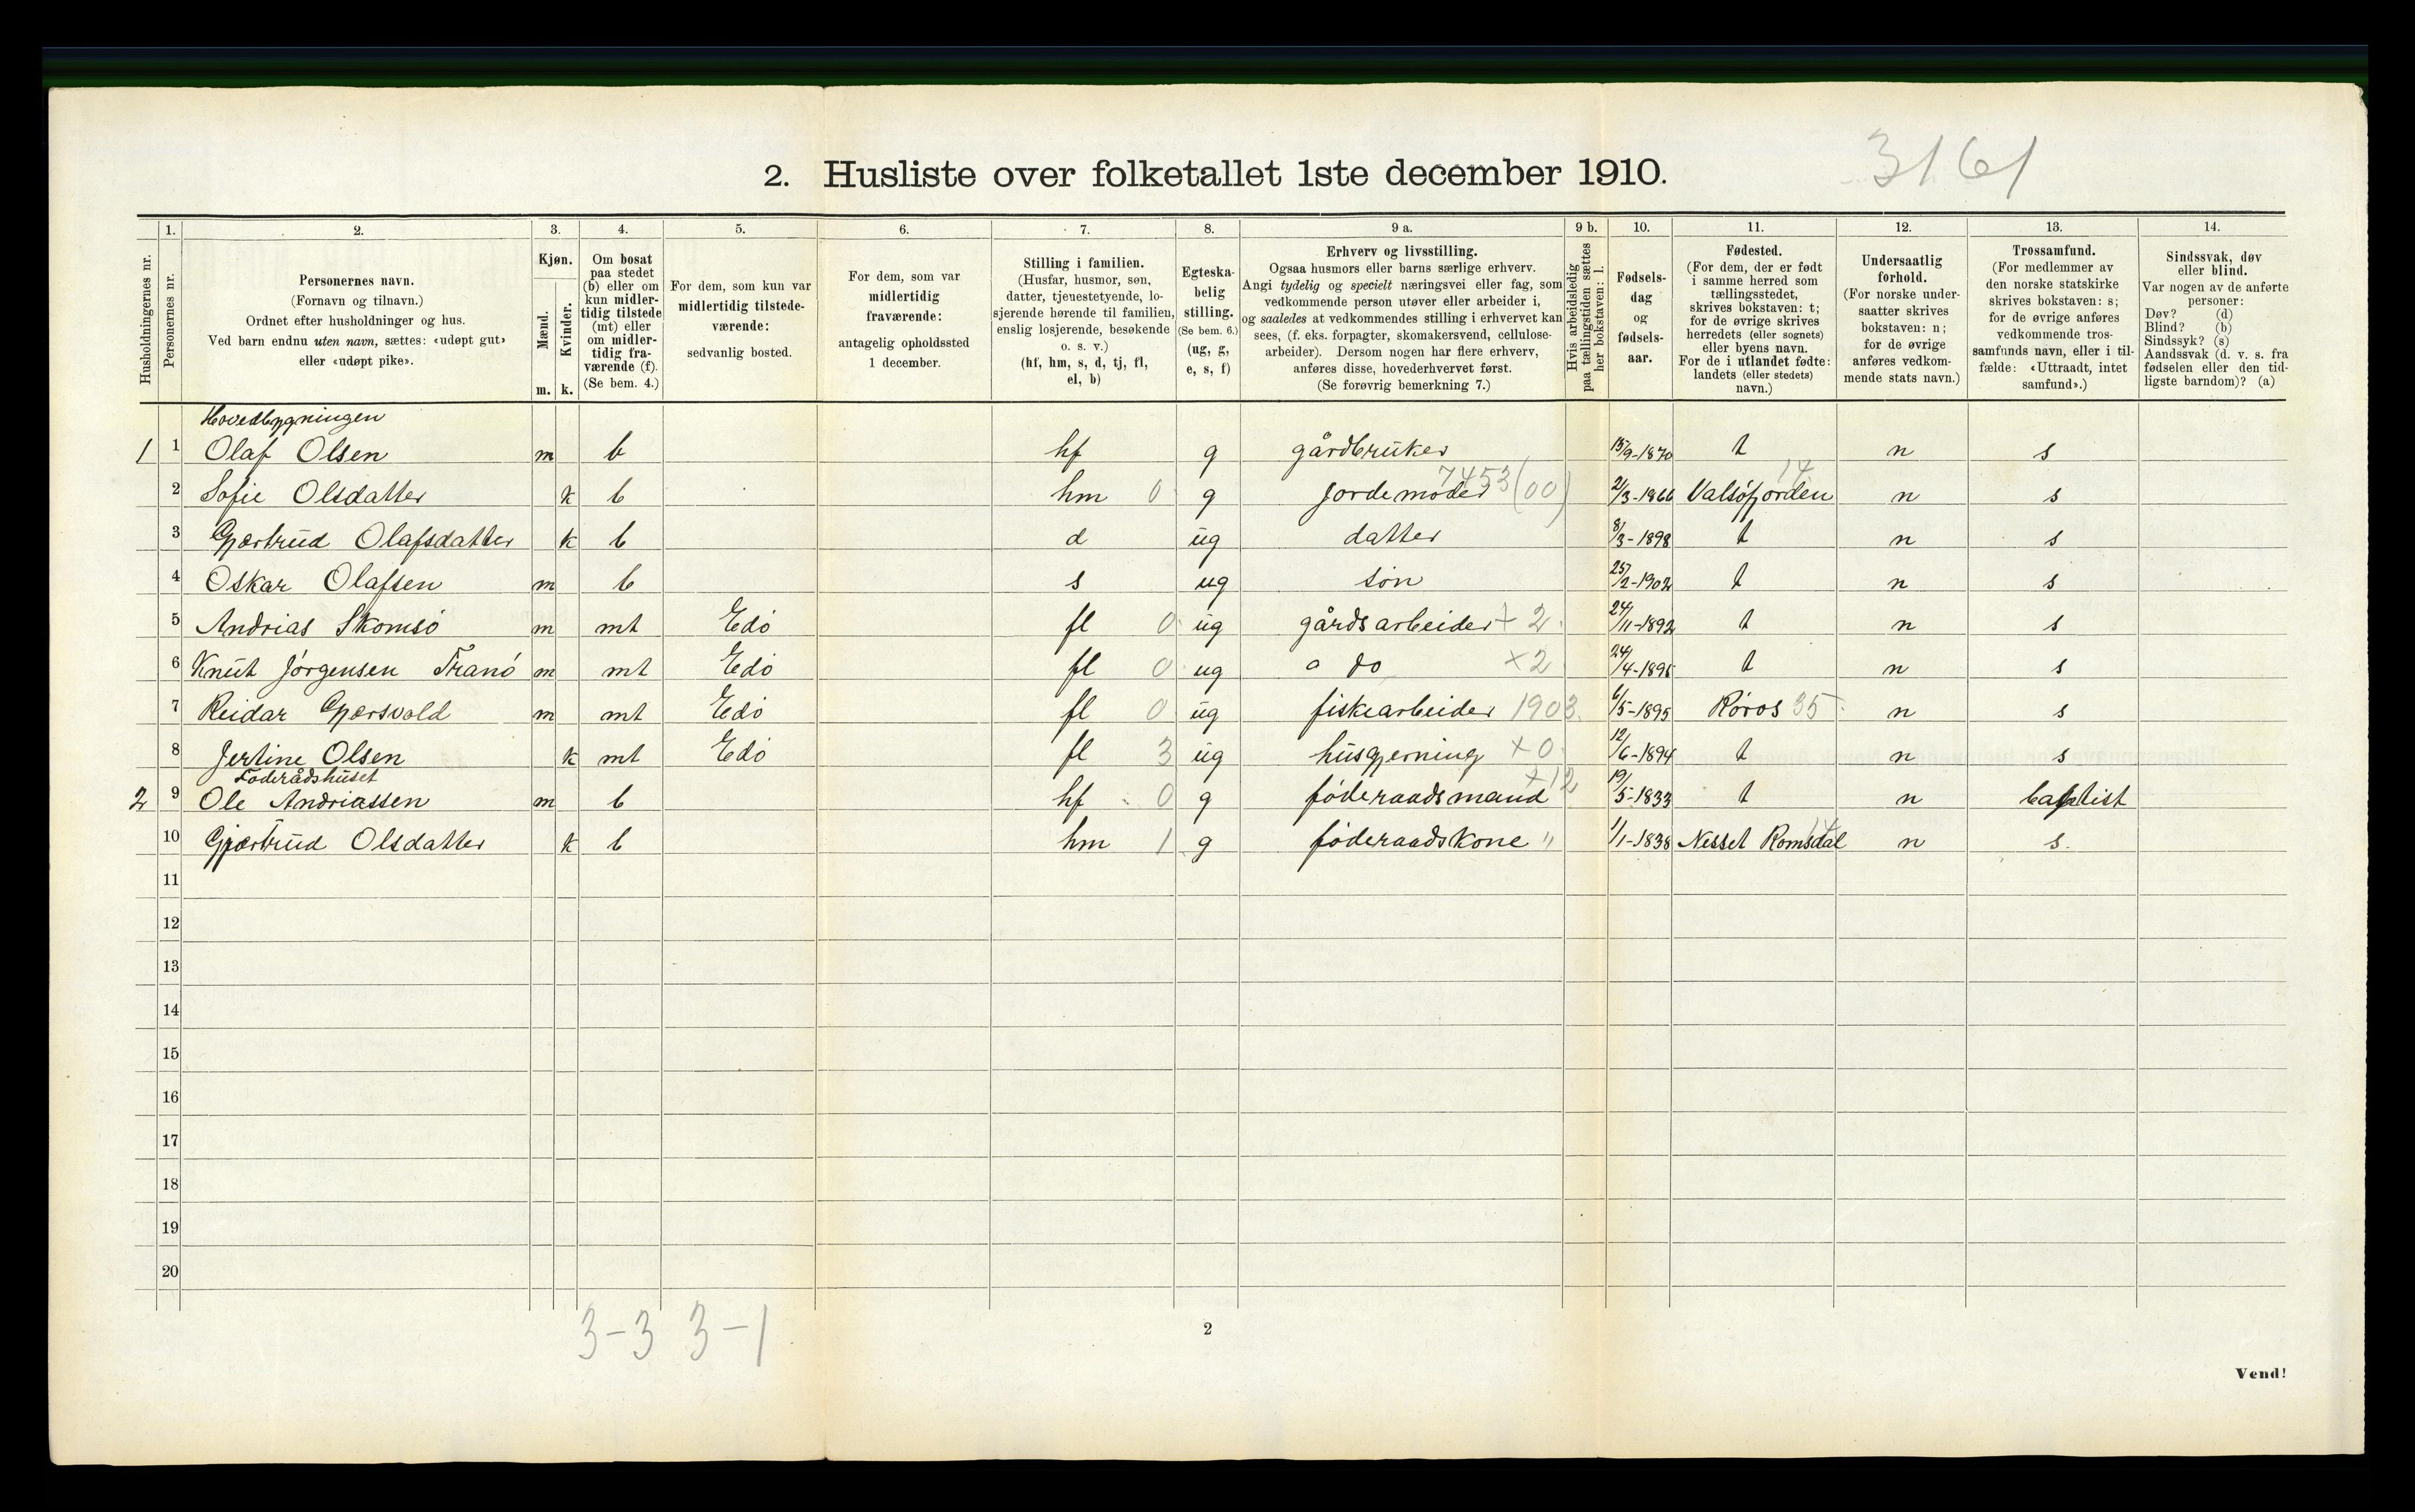 3161
2. Husliste over folketallet 1ste december 1910.
1. 2. 3. 4. 5. 6. 7. 8. 9 a. 9 b. 10. 11. 12. 13. 14.
Husholdningernes nr.
Personernes nr.
Personernes navn.
(Fornavn og tilnavn.)
Ordnet efter husholdninger og hus.
Ved barn endnu uten navn, sættes: «udøpt gut»
eller «udøpt pike».
Kjøn.
Mænd.
Kvinder.
m. k.
Om bosat
paa stedet
(b) eller om
kun midler-
tidig tilstede
(mt) eller
om midler-
tidig fra-
værende (f).
(Se bem. 4.)
For dem, som kun var
midlertidig tilstede-
værende:
sedvanlig bosted.
For dem, som var
midlertidig
fraværende:
antagelig opholdssted
1 december.
Stilling i familien.
(Husfar, husmor, søn,
datter, tjenestetyende, lo-
sjerende hørende til familien,
enslig losjerende, besøkende
o. s. v.)
(hf, hm, s, d, tj, fl,
el, b)
Egteska-
belig
stilling.
(Se bem. 6.)
(ug, g,
e, s, f)
Erhverv og livsstilling.
Ogsaa husmors eller barns særlige erhverv.
Angi tydelig og specielt næringsvei eller fag, som
vedkommende person utøver eller arbeider i,
og saaledes at vedkommendes stilling i erhvervet kan
sees, (f. eks. forpagter, skomakersvend, cellulose-
arbeider). Dersom nogen har flere erhverv,
anføres disse, hovederhvervet først.
(Se forøvrig bemerkning 7.)
Hvis arbeidsledig
paa tællingstiden sættes
her bokstaven: l.
Fødsels-
dag
og
fødsels-
aar.
Fødested.
(For dem, der er født
i samme herred som
tællingsstedet,
skrives bokstaven: t;
for de øvrige skrives
herredets (eller sognets)
eller byens navn.
For de i utlandet fødte:
landets (eller stedets)
navn.)
Undersaatlig
forhold.
(For norske under-
saatter skrives
bokstaven: n;
for de øvrige
anføres vedkom-
mende stats navn.)
Trossamfund.
(For medlemmer av
den norske statskirke
skrives bokstaven: s;
for de øvrige anføres
vedkommende tros-
samfunds navn, eller i til-
fælde: «Uttraadt, intet
samfund».)
Sindssvak, døv
eller blind.
Var nogen av de anførte
personer:
Døv? (d)
Blind? (b)
Sindssyk? (s)
Aandssvak (d. v. s. fra
fødselen eller den tid-
ligste barndom)? (a)
Hovedbygningen
1 1 Olaf Olsen m b hf g gårdbruker 15/9-1870 t n s
2 Sofie Olsdatter k b hm 0 g Jordemoder 7453 (00) 2/3-1866 Valsøfjorden 14 n s
3 Gjertrud Olafsdatter k b d ug datter 8/3-1898 t n s
4 Oskar Olafsen m b s ug søn 25/2-1902 t n s
5 Andrias Skomsø m mt Edø fl 0 ug gårdsarbeider + 2 24/11-1892 t n s
6 Knut Jørgensen Tranø m mt Edø fl 0 ug do ×2 24/4-1895 t n s
7 Reidar Gjersvold m mt Edø fl 0 ug fiskearbeider 1903 6/5-1895 Røros 35 n s
8 Jertine Olsen k mt Edø fl 3 ug husgjerning ×0 12/6-1894 t n s
Føderådshuset
2 9 Ole Andriassen m b hf 0 g føderaadsmand ×12 19/5-1833 t n baptist
10 Gjertrud Olsdatter k b hm 1 g føderaadskone " 1/1-1838 Nesset Romsdal n s.
11
12
13
14
15
16
17
18
19
20
3-3 3-1
2
Vend!